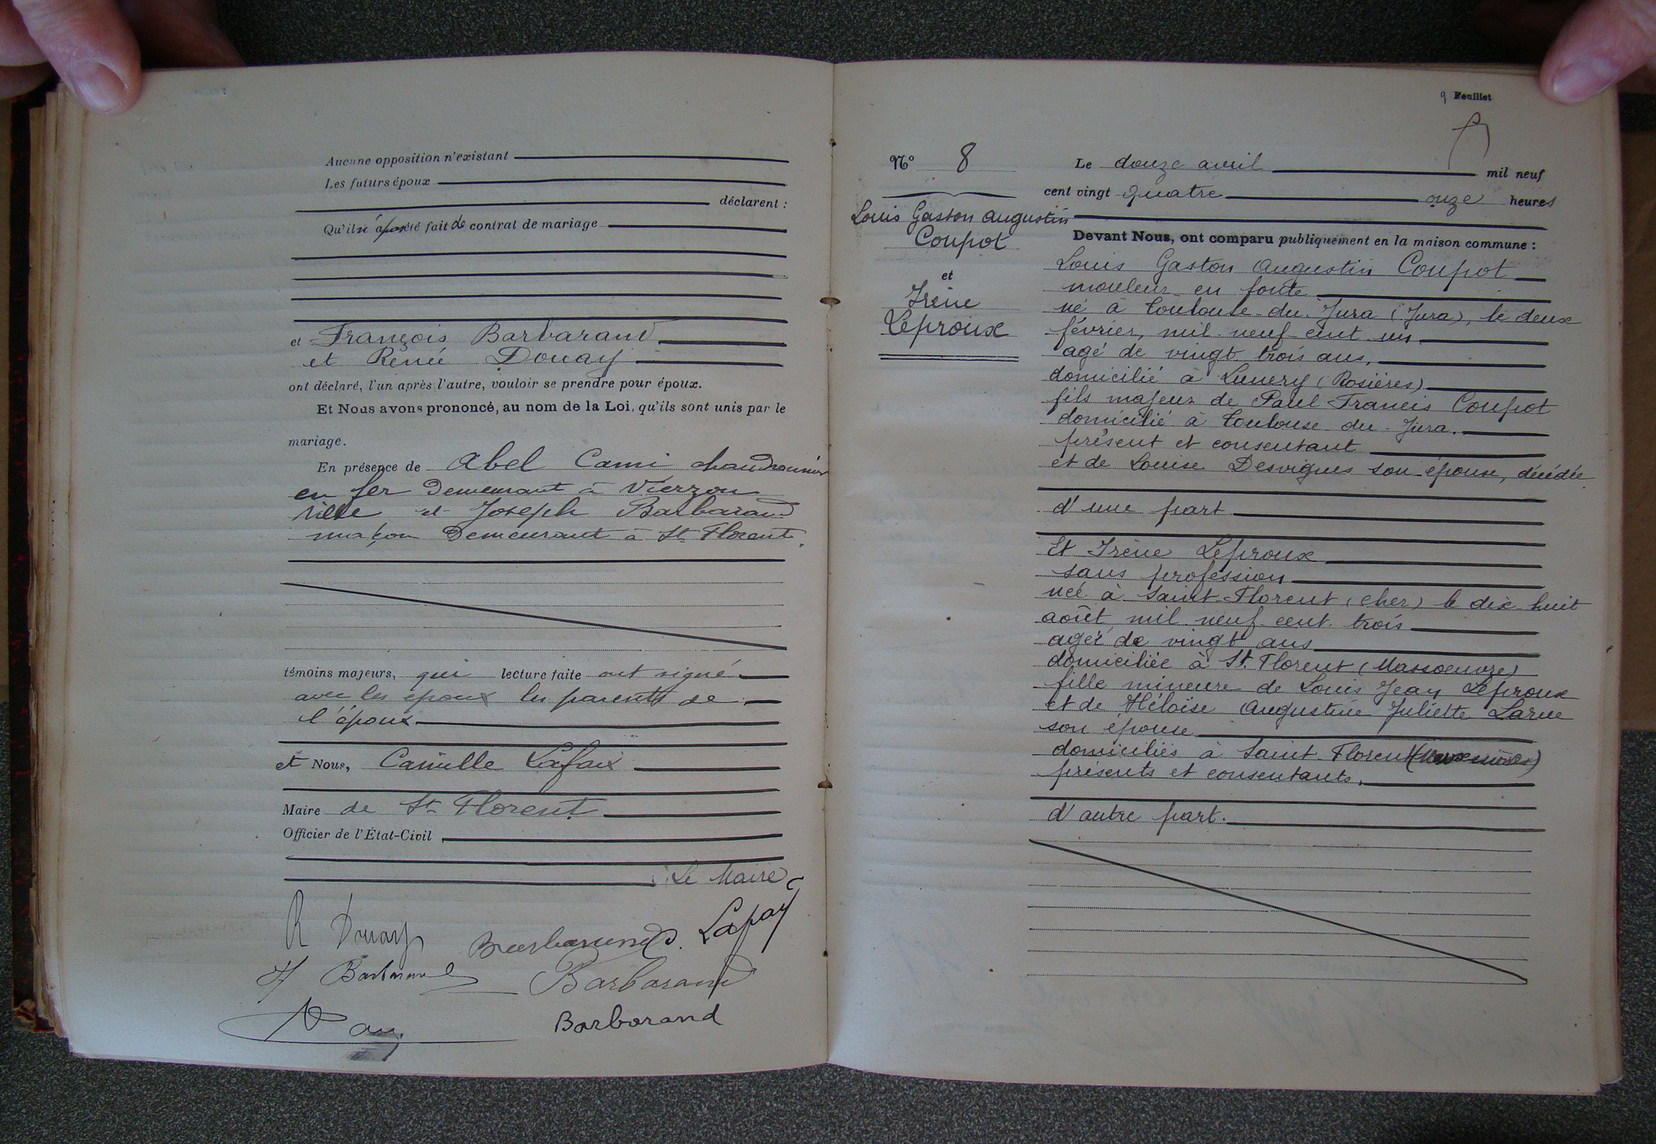 Aucune opposition n'existant
Les futurs époux
déclarent :
Qu'il été fait de contrat de mariage
et François Barbarand
et Renée Douay
ont déclaré, l'un après l'autre, vouloir se prendre pour époux.
Et Nous avons prononcé, au nom de la Loi, qu'ils sont unis par le
mariage.
En présence de Abel Cami chaudronnier
en fer demeurant à Vierzon
ville et Joseph Barbarand
maçon demeurant à St Florent.
témoins majeurs, qui lecture faite ont signé
avec les époux les parents de
l'époux
et Nous, Camille Lafaix
Maire de St Florent
Officier de l'État-Civil
Le Maire
R Douay Barbarand. Lafaix
F Barbarand Barbarand
Barborand
9 Feuillet
N° 8
Louis Gaston Augustin
Coupot
et
Irène
Leproux
Le douze avril mil neuf
cent vingt quatre onze heures
Devant Nous, ont comparu publiquement en la maison commune :
Louis Gaston Augustin Coupot
mouleur en fonte
né à Toulouse-du-Jura (Jura), le deux
février, mil neuf cent un
agé de vingt trois ans,
domicilié à Lunery (Rosières)
fils majeur de Paul Francis Coupot
domicilié à Toulouse-du-Jura.
présent et consentant
et de Louise Desvignes son épouse, décédée
d'une part
Et Irène Leproux
sans profession
née à Saint-Florent (Cher) le dix huit
août mil neuf cent trois
agée de vingt ans
domiciliée à St Florent (Massoeuvre)
fille mineure de Louis Jean Leproux
et de Héloïse Augustine Juliette Larue
son épouse
domiciliés à Saint Florent
présents et consentants.
d'autre part.